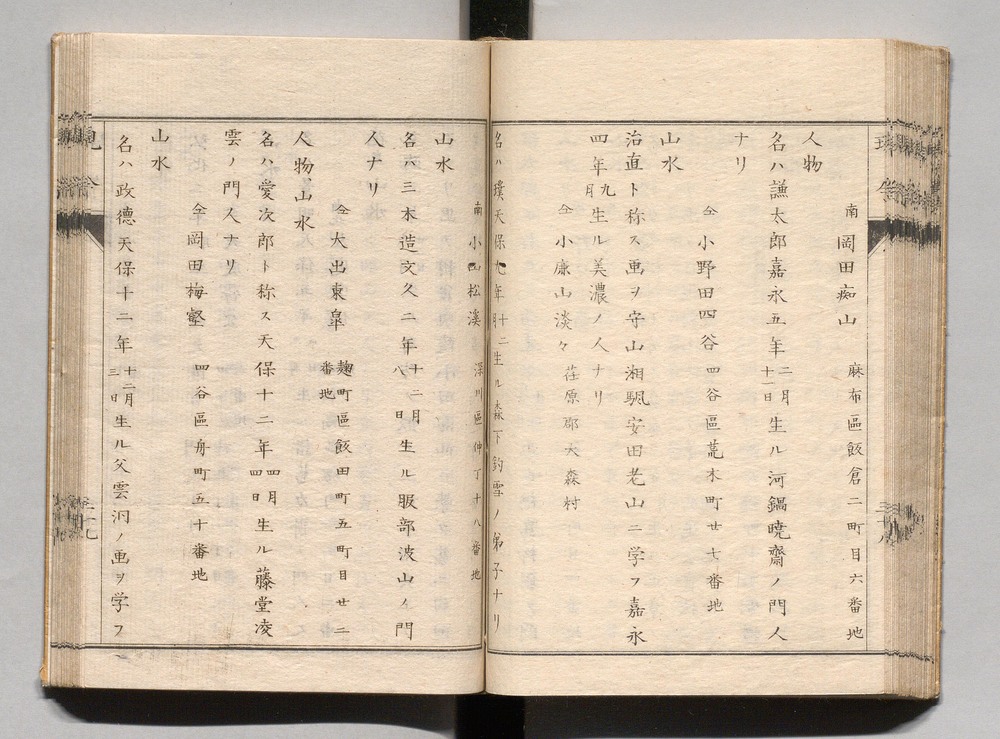 南 岡田痴山 麻布區飯倉二町目六番地
人物
名ハ謙太郎嘉永五年二月十一日生ル河鍋暁齋ノ門人
ナリ
仝 小野田四谷 四谷區荒木町廿七番地
山水
治直ト称ス画ヲ守山湘颿安田老山ニ学フ嘉永
四年九月生ル美濃ノ人ナリ
仝 小廉山淡々 荏原郡大森村
名ハ璞天保九年十二月生ル森下釣雪ノ弟子ナリ
南 小山松溪 深川區仲丁十八番地
山水
名ハ三木造文久二年十二月八日生ル服部波山ノ門
人ナリ
仝 大出東皐 麹町區飯田町五町目廿二番地
人物、山水
名ハ愛次郎ト称ス天保十二年四月四日生ル藤堂凌
雲ノ門人ナリ
仝 岡田梅壑 四谷區舟町五十番地
山水
名ハ政徳天保十二年十二月三日生ル父雲洞ノ画ヲ学フ